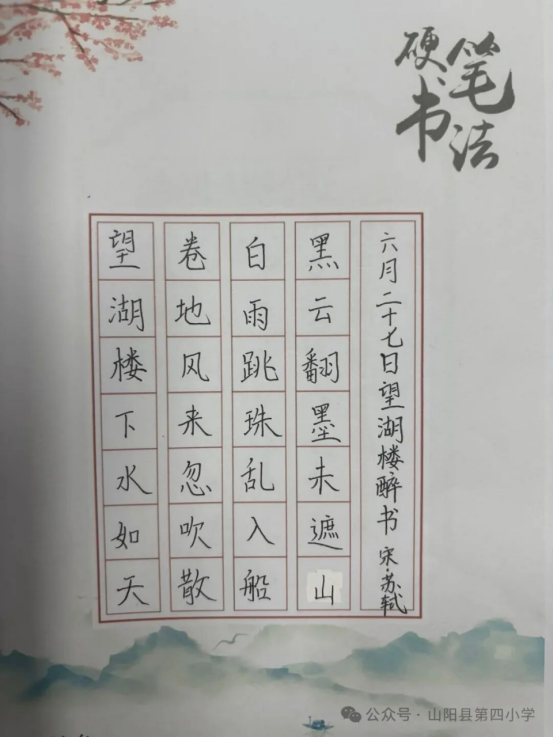 硬笔
书法
六月二十七日望湖楼醉书 宋·苏轼
黑云翻墨未遮山
白雨跳珠乱入船
卷地风来忽吹散
望湖楼下水如天
公众号·山阳县第四小学